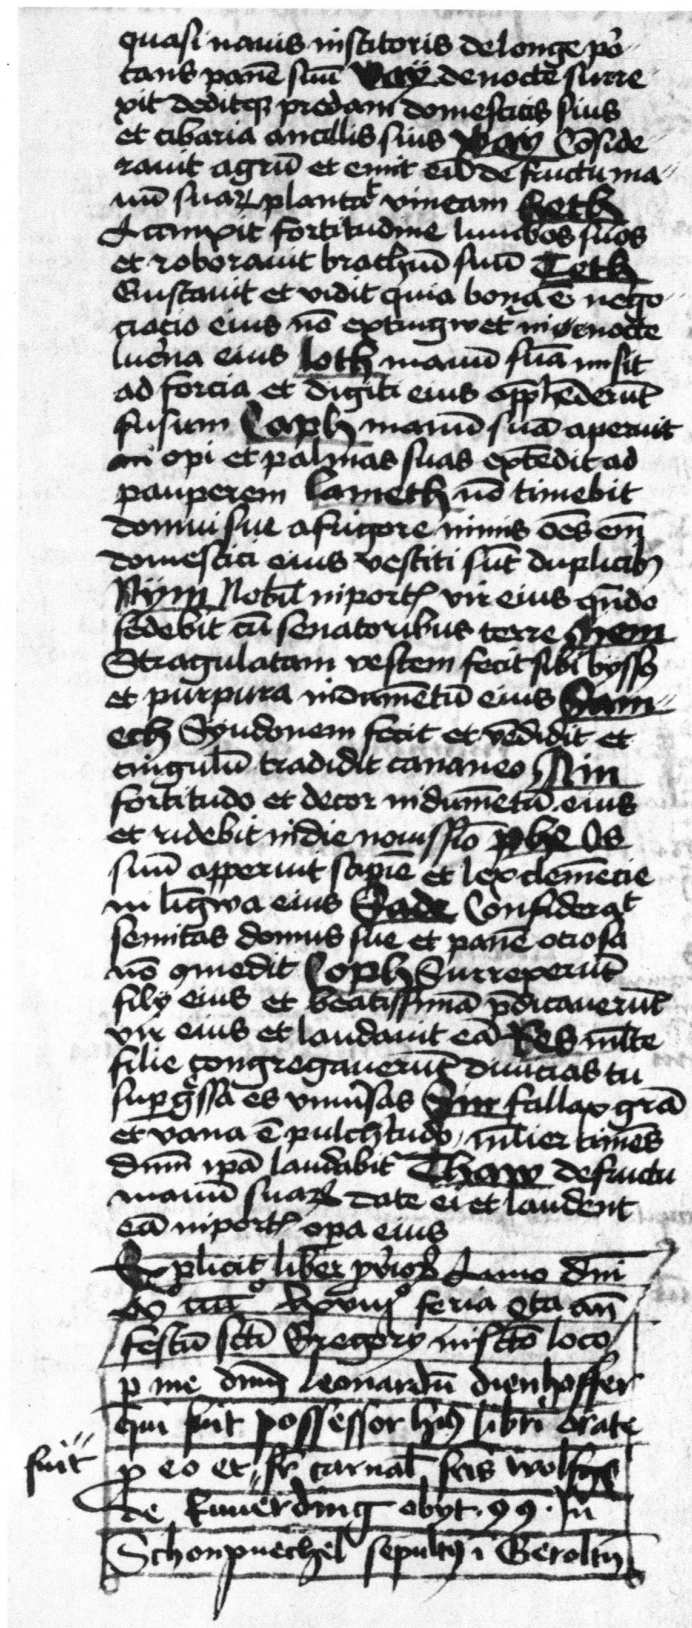 quasi nauis institoris de longe por
tans panē suū Vaÿ de nocte surre
xit deditq₃ predam domesticis suis
et cibaria ancillis suis Zaÿ Cōside
rauit agrū et emit eū de fructu ma
nuū suaꝝ plantaͭ vineam Heth
Accinxit fortitudine lumbos suos
et roborauit brachiū suū Teth
Gustauit et vidit quia bona ē nego
ciacio eius nō extingwet̄ in nocte
lucͬna eius Ioth manū suā misit
ad forcia et digiti eius app͛hēderūt
fusum Caph manū suā aperuit
in opi et palmas suas extēdit ad
pauperem Lameth nō timebit
domui sue a frigore niuis oēs em̄
domestici eius vestiti sūt duplicibꝫ
Nobil̄ in portꝭ vir eius qn̄do
sedebit cū senatoribus terre
Stragulatam vestem fecit sibi byssꝫ
et purpura indumētū eius Sam
ech Syndonem fecit et vēdidit et
cingulū tradidit cananeo Ain
fortitudo et decor indumētū eius
et ridebit in die nouissīo phe Os
suū apperuit sapiē et lex clemēcie
in līgwa eius Sade Consideraͭ
semitas domus sue et panē ociosa
nō ꝯmedit Coph Surrexerūt
filÿ eius et beatissimā p̄dicauerūt
vir eius et laudauit eā Res ml̄te
filie congregauerūt diuicias tu
sup̱gͤssa es vniuͬsas Sin fallax grā
et vana ē pulchͭtudo ml̄ier timēs
dn̄m ip̄a laudabit̄ Thaw de fructu
manuū suaꝝ date ei et laudent
eā in portꝭ op̱a eius
Explicit liber p̱uͬbioꝝ Anno dn̄i
feria qͣta an̄
festū scti Gregorÿ in sctō loco
p̱ me dn̄m Leonardū dienhoffer
qui fuit possessor hꝰ libri orate
fuit p̱ eo et fr̄ carnal̄
de obÿt · 99 · in
Schonpuechel sepultꝰ ī Geroltn̄